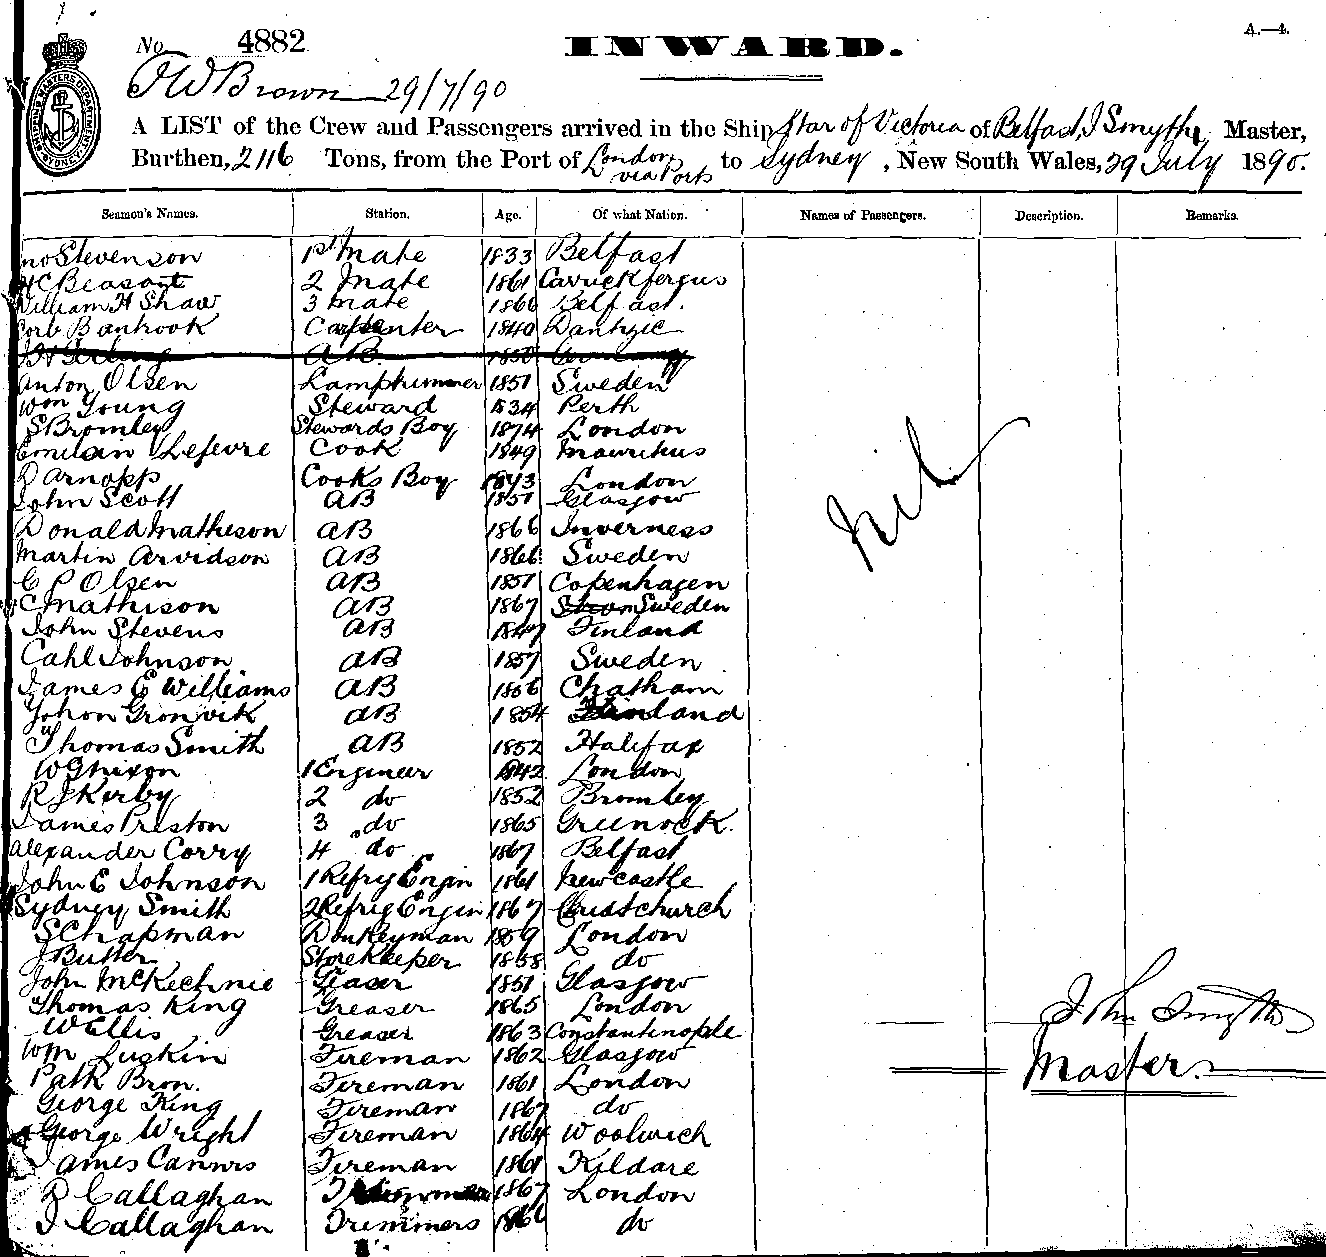 No. 4882 INWARD. A.—4.
J W Brown 29/7/90
A LIST of the Crew and Passengers arrived in the Ship Star of Victoria of Belfast, J Smythe Master,
Burthen, 2116 Tons, from the Port of London via Ports to Sydney, New South Wales, 29 July 1890.
Seamen's Names. Station. Age. Of what Nation. Names of Passengers. Description. Remarks.
Jno Stevenson 1st Mate 1833 Belfast
H C Beasant 2 Mate 1861 Carrickfergus
William H Shaw 3 mate 1866 Belfast.
Bankook Carpenter 1840 Dantzic
AB 1850 Germany
Anton Olsen Lamptrimmer 1851 Sweden
Wm Young Steward 1834 Perth
S Bromley Stewards Boy 1874 London
Emilsin Lefevre Cook 1849 Mauritius
Arnapp Cooks Boy 1873 London
John Scott AB 1851 Glasgow
Donald Matheson AB 1866 Inverness
Martin Arvidson AB 1866 Sweden
C P Olsen AB 1857 Copenhagen
C Mathison AB 1867 Sweden
John Stevens AB 1847 Finland
Cahl Johnson AB 1857 Sweden
James E Williams AB 1856 Chatham
Johon Gronvik AB 1854 Finland
Thomas Smith AB 1852 Halifax
W G Nixon 1 Engineer 1842 London
R J Kerby 2 do 1852 Bromley
James Preston 3 do 1865 Greenock.
Alexander Corry 4 do 1867 Belfast
John E Johnson 1 Refrg Engin 1861 Newcastle
Sydney Smith 2 Refrig Engin 1867 Christchurch
S Chapman Donkeyman 1859 London
J Butter Storekeeper 1858 do
John McKechnie Greaser 1851 Glasgow
Thomas King Greaser 1865 London
W Ellis Greaser 1863 Constantinople
Wm Luskin Fireman 1862 Glasgow
Patk Bron. Fireman 1861 London
George King Fireman 1867 do
George Wright Fireman 1864 Woolwich
James Cannrs Fireman 1861 Kildare
Callaghan 1867 London
J Callaghan Trimmers 1866 do
Nil
John Smythe
Master